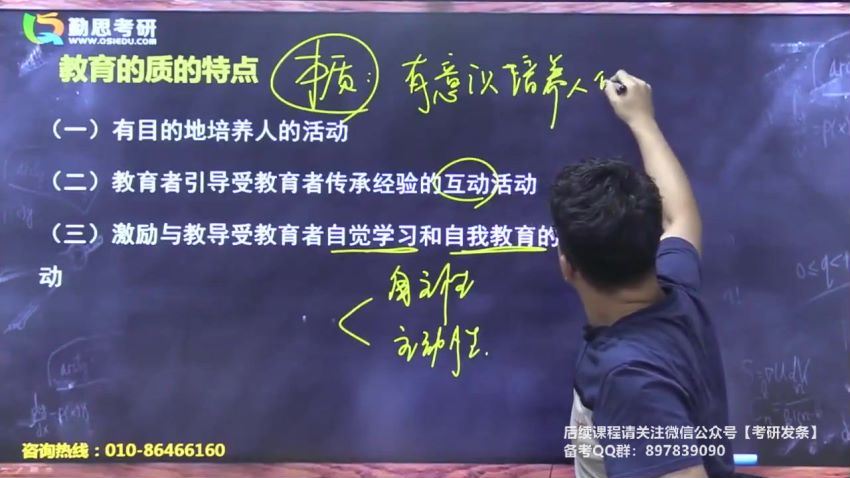 勤思考研
WWW.QSIEDU.COM
教育的质的特点
本质：有意识培养人
（一）有目的地培养人的活动
（二）教育者引导受教育者传承经验的互动活动
（三）激励与教导受教育者自觉学习和自我教育的
动
自主性
主动性.
咨询热线：010-86466160
后续课程请关注微信公众号【考研发条】
备考QQ群：897839090